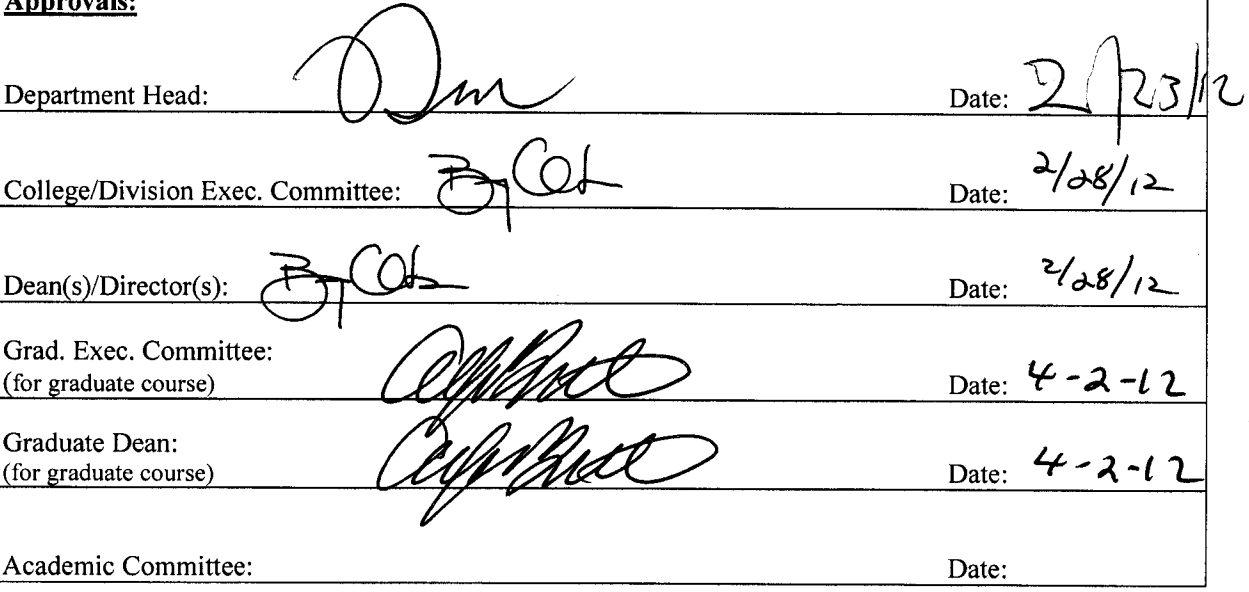 Approvals:
Department Head: Date: 2/23/12
College/Division Exec. Committee: Date: 2/28/12
Dean(s)/Director(s): Date: 2/28/12
Grad. Exec. Committee:
(for graduate course) Date: 4-2-12
Graduate Dean:
(for graduate course) Date: 4-2-12
Academic Committee: Date: